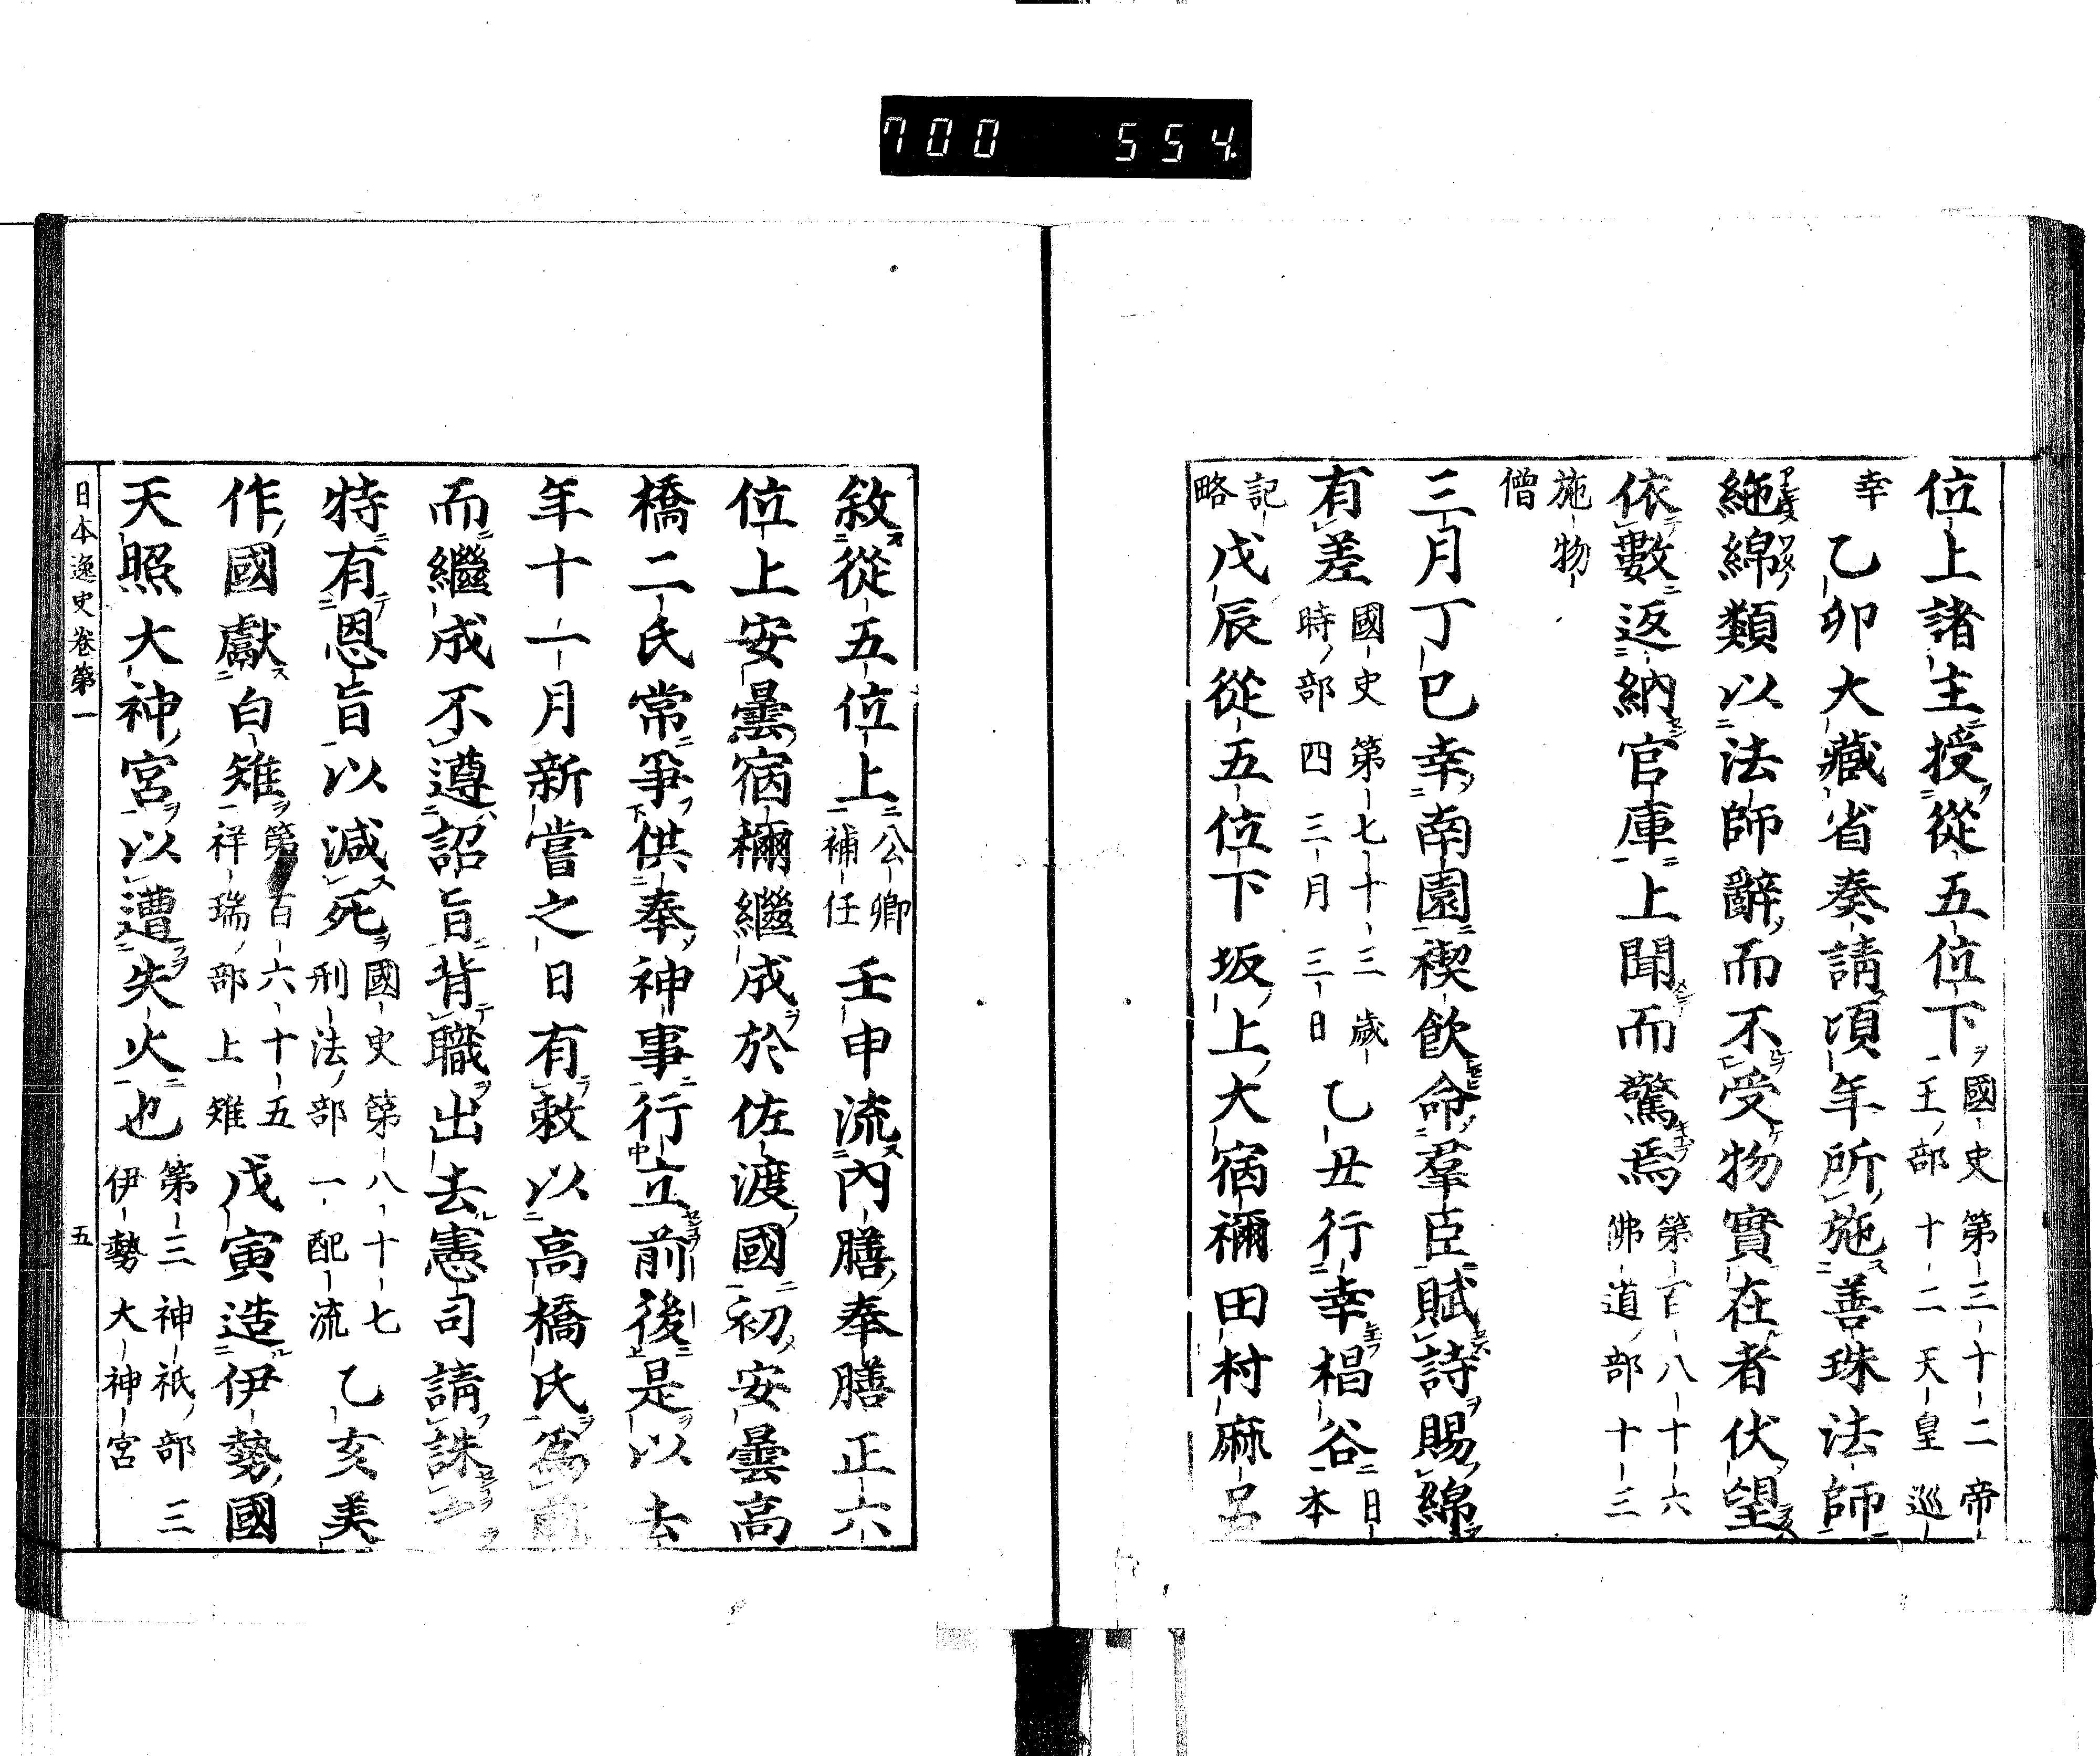 700 554.
位上諸主授從五位下國史第三十二帝王部十二天皇巡
幸乙卯大藏省奏請頃年所施善珠法師
絁綿類以法師辭而不受物實在者伏望
依數返納官庫上聞而驚焉第一百八十六佛道部十三
施物僧
三月丁巳幸南園禊飲命羣臣賦詩賜綿
有差國史第七十三歲時部四三月三日乙丑行幸椙谷日本
記略戊辰從五位下坂上大宿禰田村麻呂
敘從五位上公卿補任壬申流內膳奉膳正六
位上安曇宿禰繼成於佐渡國初安曇高
橋二氏常爭供奉神事行立前後是以去
年十一月新嘗之日有敕以高橋氏爲前
而繼成不遵詔旨背職出去憲司請誅之
特有恩旨以減死國史第八十七刑法部一配流乙亥美
作國獻白雉第百六十五祥瑞部上雉戊寅造伊勢國
天照大神宮以遭失火也第三神祇部三伊勢大神宮
日本逸史卷第一 五